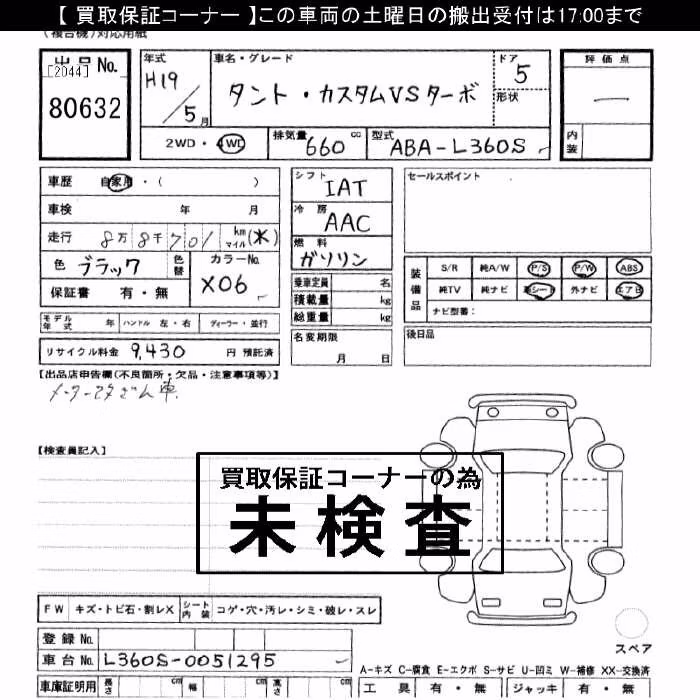 【 買取保証コーナー 】この車両の土曜日の搬出受付は17:00まで
(複合機)対応用紙
出品No.
[2044]
80632
年式
H19
/5月
車名・グレード
タント・カスタムVSターボ
ドア
5
形状
2WD・4WD
排気量
660 cc
型式
ABA-L360S
評価点
—
内装
車歴 自家用・( )
車検 年 月
走行 8万8千701 km マイル (*)
色 ブラック 色替
カラーNo.
X06
保証書 有・無
モデル年式 年 ハンドル 左・右 ディーラー・並行
リサイクル料金 9,430 円 預託済
シフト
IAT
冷房
AAC
燃料
ガソリン
乗車定員 名
積載量 kg
総重量 kg
名変期限
月 日
セールスポイント
装備品
S/R 純A/W P/S P/W ABS
純TV 純ナビ 革シート 外ナビ エアB
ナビ型番:
後日品
【出品店申告欄(不良箇所・欠品・注意事項等)】
メーター改ざん車
【検査員記入】
買取保証コーナーの為
未検査
FW キズ・トビ石・割レX シート内装 コゲ・穴・汚レ・シミ・破レ・スレ
登録No.
車台No. L360S-0051295
車庫証明用 長さ cm 幅 cm 高さ cm
スペア
A-キズ C-腐食 E-エクボ S-サビ U-凹ミ W-補修 XX-交換済
工具 有・無 ジャッキ 有・無